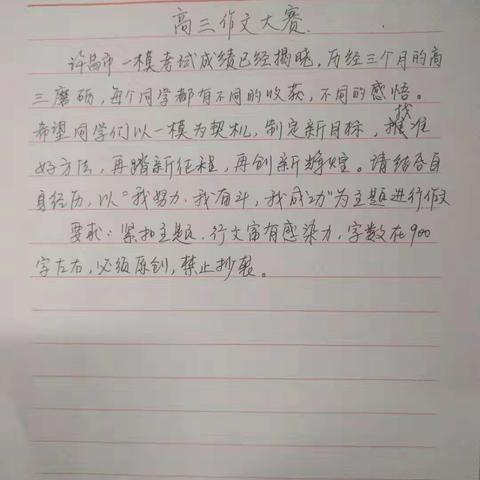 高三作文大赛.
许昌市一模考试成绩已经揭晓，历经三个月的高
三磨砺，每个同学都有不同的收获，不同的感悟。
希望同学们以一模为契机，制定新目标，找准
好方法，再踏新征程，再创新辉煌。请结合自
身经历，以“我努力、我奋斗，我成功”为主题进行作文
要求：紧扣主题，行文富有感染力，字数在900
字左右，必须原创，禁止抄袭。